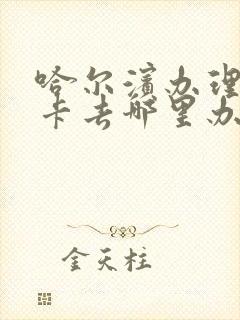 哈尔滨办理
卡去哪里办
金天柱